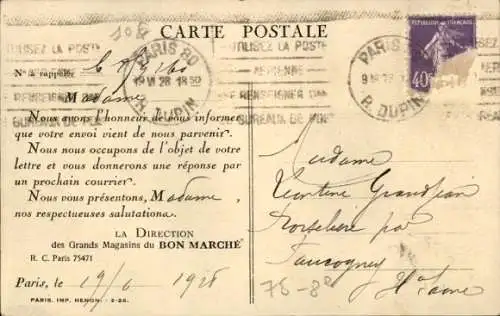 CARTE POSTALE
UTILISEZ LA POSTE
AERIENNE
RENSEIGNER DANS
BUREAUX DE POSTE
PARIS 80
19 VI 28 18 50
R. DUPIN
REPUBLIQUE FRANÇAISE
40
PARIS
R. DUPIN
Nº à rappeler
Madame
Nous avons l'honneur de vous informer
que votre envoi vient de nous parvenir.
Nous nous occupons de l'objet de votre
lettre et vous donnerons une réponse par
un prochain courrier.
Nous vous présentons, Madame,
nos respectueuses salutations.
LA DIRECTION
des Grands Magasins du BON MARCHÉ
R. C. Paris 75471
Paris, le 19/6 1928
PARIS. IMP. HENON.
Madame
Léontine Grandjean
par
Faucogney
Hte Saone
75-8e